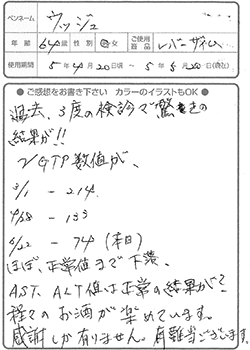 ペンネーム ウッジュ
年齢 64歳 性別 男・女 ご使用商品 レバーザイム
使用期間 5年4月20日頃 ~ 5年5月20日
● ご感想をお書き下さい カラーのイラストもOK ●
過去、3度の検診で驚きの
結果が!!
γGTP数値が、
3/1 - 214
4/28 - 133
5/22 - 74 (本日)
ほぼ、正常値まで下落、
AST、ALT値は正常の結果が?
程々のお酒が楽めています。
感謝しか有りません。有難当ございます。